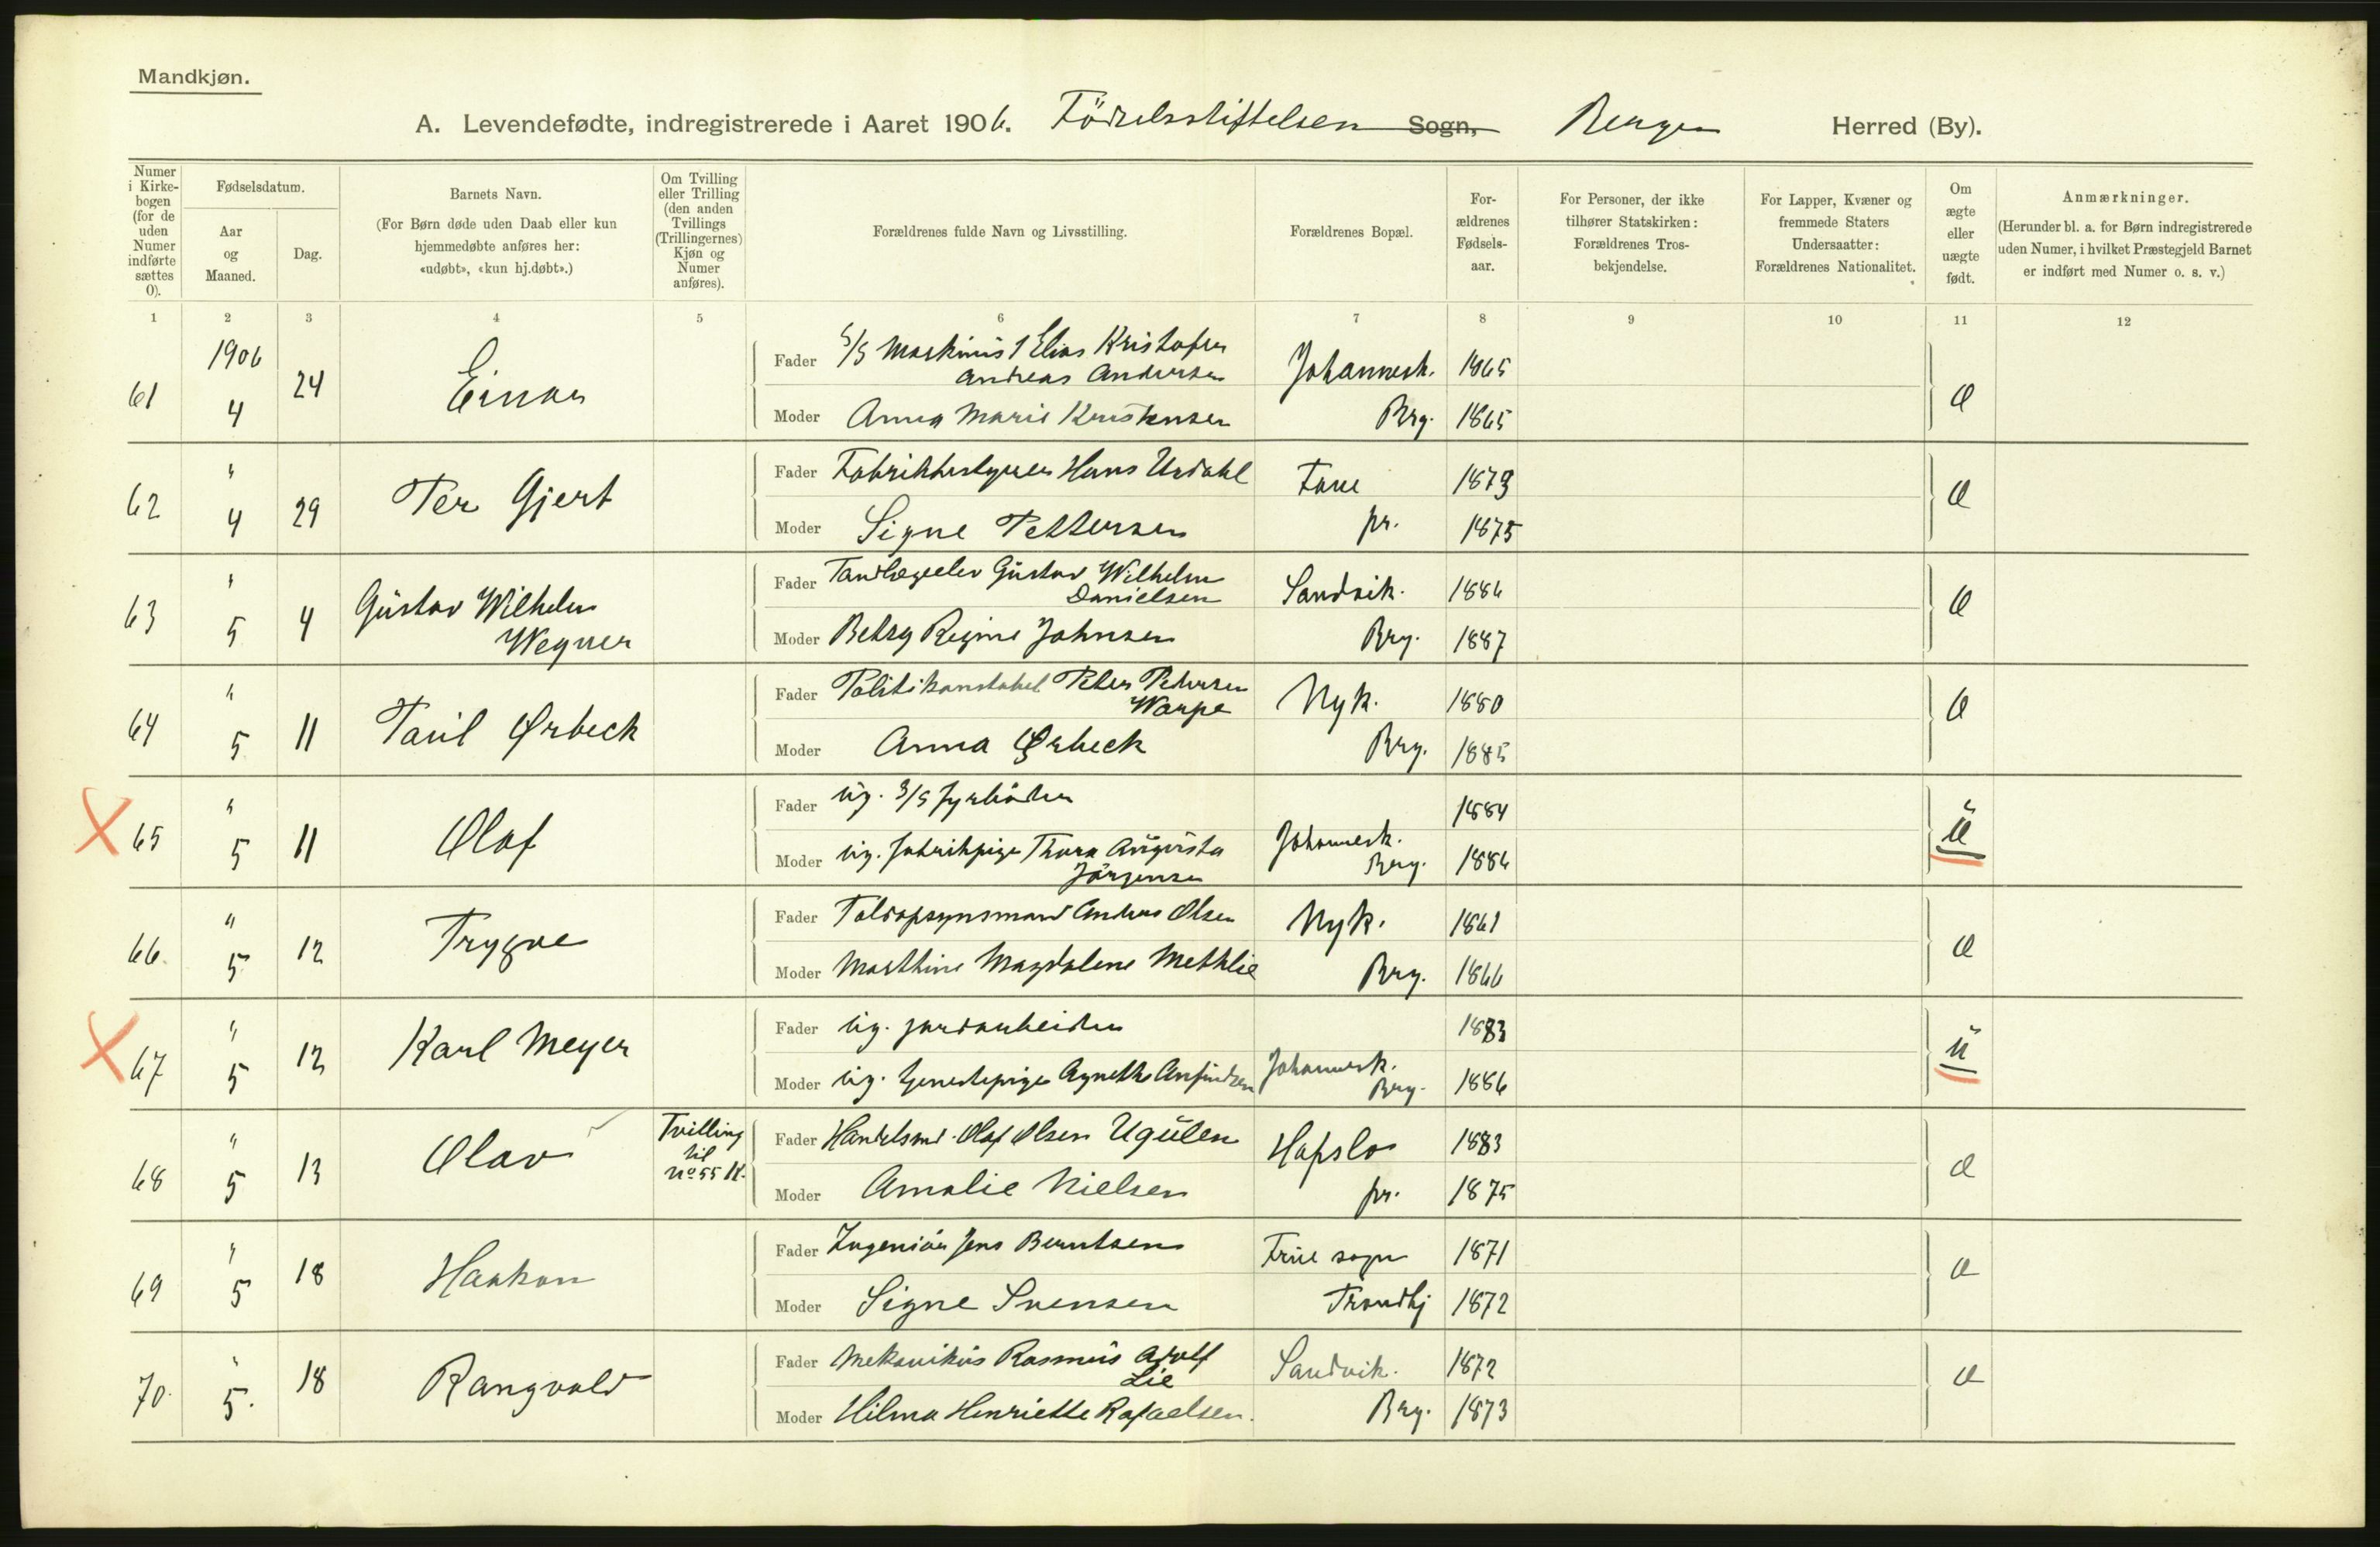 Mandkjøn.
A. Levendefødte, indregistrerede i Aaret 1906. Födselsstiftelsen Sogn, Bergen Herred (By).
Numer i Kirkebogen (for de uden Numer indførte sættes 0).
Fødselsdatum.
Aar og Maaned.
Dag.
Barnets Navn.
(For Børn døde uden Daab eller kun hjemmedøbte anføres her: «udøbt», «kun hj.døbt».)
Om Tvilling eller Trilling (den anden Tvillings (Trillingernes) Kjøn og Numer anføres).
Forældrenes fulde Navn og Livsstilling.
Forældrenes Bopæl.
Forældrenes Fødselsaar.
For Personer, der ikke tilhører Statskirken: Forældrenes Trosbekjendelse.
For Lapper, Kvæner og fremmede Staters Undersaatter: Forældrenes Nationalitet.
Om ægte eller uægte født.
Anmærkninger.
(Herunder bl. a. for Børn indregistrerede uden Numer, i hvilket Præstegjeld Barnet er indført med Numer o. s. v.)
1 2 3 4 5 6 7 8 9 10 11 12
61 1906 4 24 Einar
Fader Maskinist Elias Kristofer Andreas Andersen Johannesk. 1865
Moder Anna Marie Kristensen Brg. 1865
Æ
62 " 4 29 Per Gjert
Fader Fabrikbestyrer Hans Urdahl Fane 1873
Moder Signe Pettersen pr. 1875
Æ
63 " 5 4 Gustav Wilhelm Wegner
Fader Tandlægeelev Gustav Wilhelm Danielsen Sandvik. 1886
Moder Betsy Regine Johnsen Brg. 1887
Æ
64 " 5 11 Paul Ørbeck
Fader Politikonstabel Peter Pedersen Warpe Nyk. 1880
Moder Anna Ørbeck Brg. 1885
Æ
65 " 5 11 Olaf
Fader ug. S/S fyrböder 1884
Moder ug. fabrikpige Thora Augusta Jörgensen Johannesk. Brg. 1886
U
66. " 5 12 Trygve
Fader Toldopsynsmand Andreas Olsen Nyk. 1861
Moder Marthine Magdalene Methlie Brg. 1866
Æ
67 " 5 12 Karl Meyer
Fader ug. jordarbeider 1883
Moder ug. tjenestepige Agnethe Anfindsen Johannesk. Brg. 1886
u
68 " 5 13 Olav Tvilling til No 55 K.
Fader Handelsmd. Olaf Olsen Ugulen Hafslo 1883
Moder Amalie Nielsen pr. 1875
æ
69 " 5 18 Haakon
Fader Ingeniör Jens Berntsen Frue sogn 1871
Moder Signe Svensen Trondhj 1872
æ
70. " 5. 18 Rangvald
Fader Mekanikus Rasmus Adolf Lie Sandvik. 1872
Moder Hilma Henriette Rafaelsen. Brg. 1873
æ